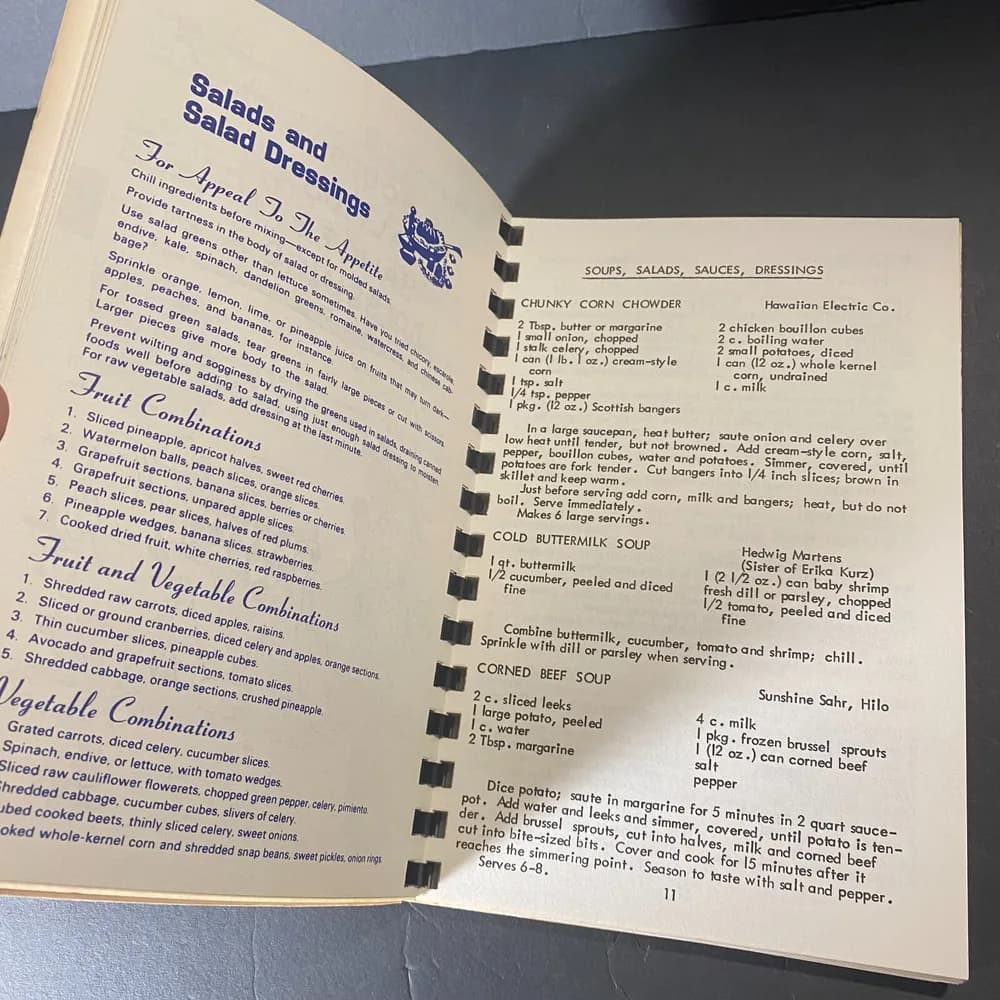 Salads and
Salad Dressings
For Appeal To The Appetite
Chill ingredients before mixing—except for molded salads.
Provide tartness in the body of salad or dressing.
Use salad greens other than lettuce sometimes. Have you tried chicory, escarole,
endive, kale, spinach, dandelion greens, romaine, watercress, and chinese cab-
bage?
Sprinkle orange, lemon, lime, or pineapple juice on fruits that may turn dark—
apples, peaches, and bananas, for instance.
For tossed green salads, tear greens in fairly large pieces or cut with scissors.
Larger pieces give more body to the salad.
Prevent wilting and sogginess by drying the greens used in salads, draining canned
foods well before adding to salad, using just enough salad dressing to moisten.
For raw vegetable salads, add dressing at the last minute.
Fruit Combinations
1. Sliced pineapple, apricot halves, sweet red cherries.
2. Watermelon balls, peach slices, orange slices.
3. Grapefruit sections, banana slices, berries or cherries.
4. Grapefruit sections, unpared apple slices.
5. Peach slices, pear slices, halves of red plums.
6. Pineapple wedges, banana slices, strawberries.
7. Cooked dried fruit, white cherries, red raspberries.
Fruit and Vegetable Combinations
1. Shredded raw carrots, diced apples, raisins.
2. Sliced or ground cranberries, diced celery and apples, orange sections.
3. Thin cucumber slices, pineapple cubes.
4. Avocado and grapefruit sections, tomato slices.
5. Shredded cabbage, orange sections, crushed pineapple.
Vegetable Combinations
Grated carrots, diced celery, cucumber slices.
Spinach, endive, or lettuce, with tomato wedges.
Sliced raw cauliflower flowerets, chopped green pepper, celery, pimiento.
hredded cabbage, cucumber cubes, slivers of celery.
ubed cooked beets, thinly sliced celery, sweet onions.
ooked whole-kernel corn and shredded snap beans, sweet pickles, onion rings.
SOUPS, SALADS, SAUCES, DRESSINGS
CHUNKY CORN CHOWDER Hawaiian Electric Co.
2 Tbsp. butter or margarine 2 chicken bouillon cubes
1 small onion, chopped 2 c. boiling water
1 stalk celery, chopped 2 small potatoes, diced
1 can (1 lb. 1 oz.) cream-style 1 can (12 oz.) whole kernel
corn corn, undrained
1 tsp. salt 1 c. milk
1/4 tsp. pepper
1 pkg. (12 oz.) Scottish bangers
In a large saucepan, heat butter; saute onion and celery over
low heat until tender, but not browned. Add cream-style corn, salt,
pepper, bouillon cubes, water and potatoes. Simmer, covered, until
potatoes are fork tender. Cut bangers into 1/4 inch slices; brown in
skillet and keep warm.
Just before serving add corn, milk and bangers; heat, but do not
boil. Serve immediately.
Makes 6 large servings.
COLD BUTTERMILK SOUP Hedwig Martens
(Sister of Erika Kurz)
1 qt. buttermilk 1 (2 1/2 oz.) can baby shrimp
1/2 cucumber, peeled and diced fresh dill or parsley, chopped
fine 1/2 tomato, peeled and diced
fine
Combine buttermilk, cucumber, tomato and shrimp; chill.
Sprinkle with dill or parsley when serving.
CORNED BEEF SOUP Sunshine Sahr, Hilo
2 c. sliced leeks 4 c. milk
1 large potato, peeled 1 pkg. frozen brussel sprouts
1 c. water 1 (12 oz.) can corned beef
2 Tbsp. margarine salt
pepper
Dice potato; saute in margarine for 5 minutes in 2 quart sauce-
pot. Add water and leeks and simmer, covered, until potato is ten-
der. Add brussel sprouts, cut into halves, milk and corned beef
cut into bite-sized bits. Cover and cook for 15 minutes after it
reaches the simmering point. Season to taste with salt and pepper.
Serves 6-8.
11